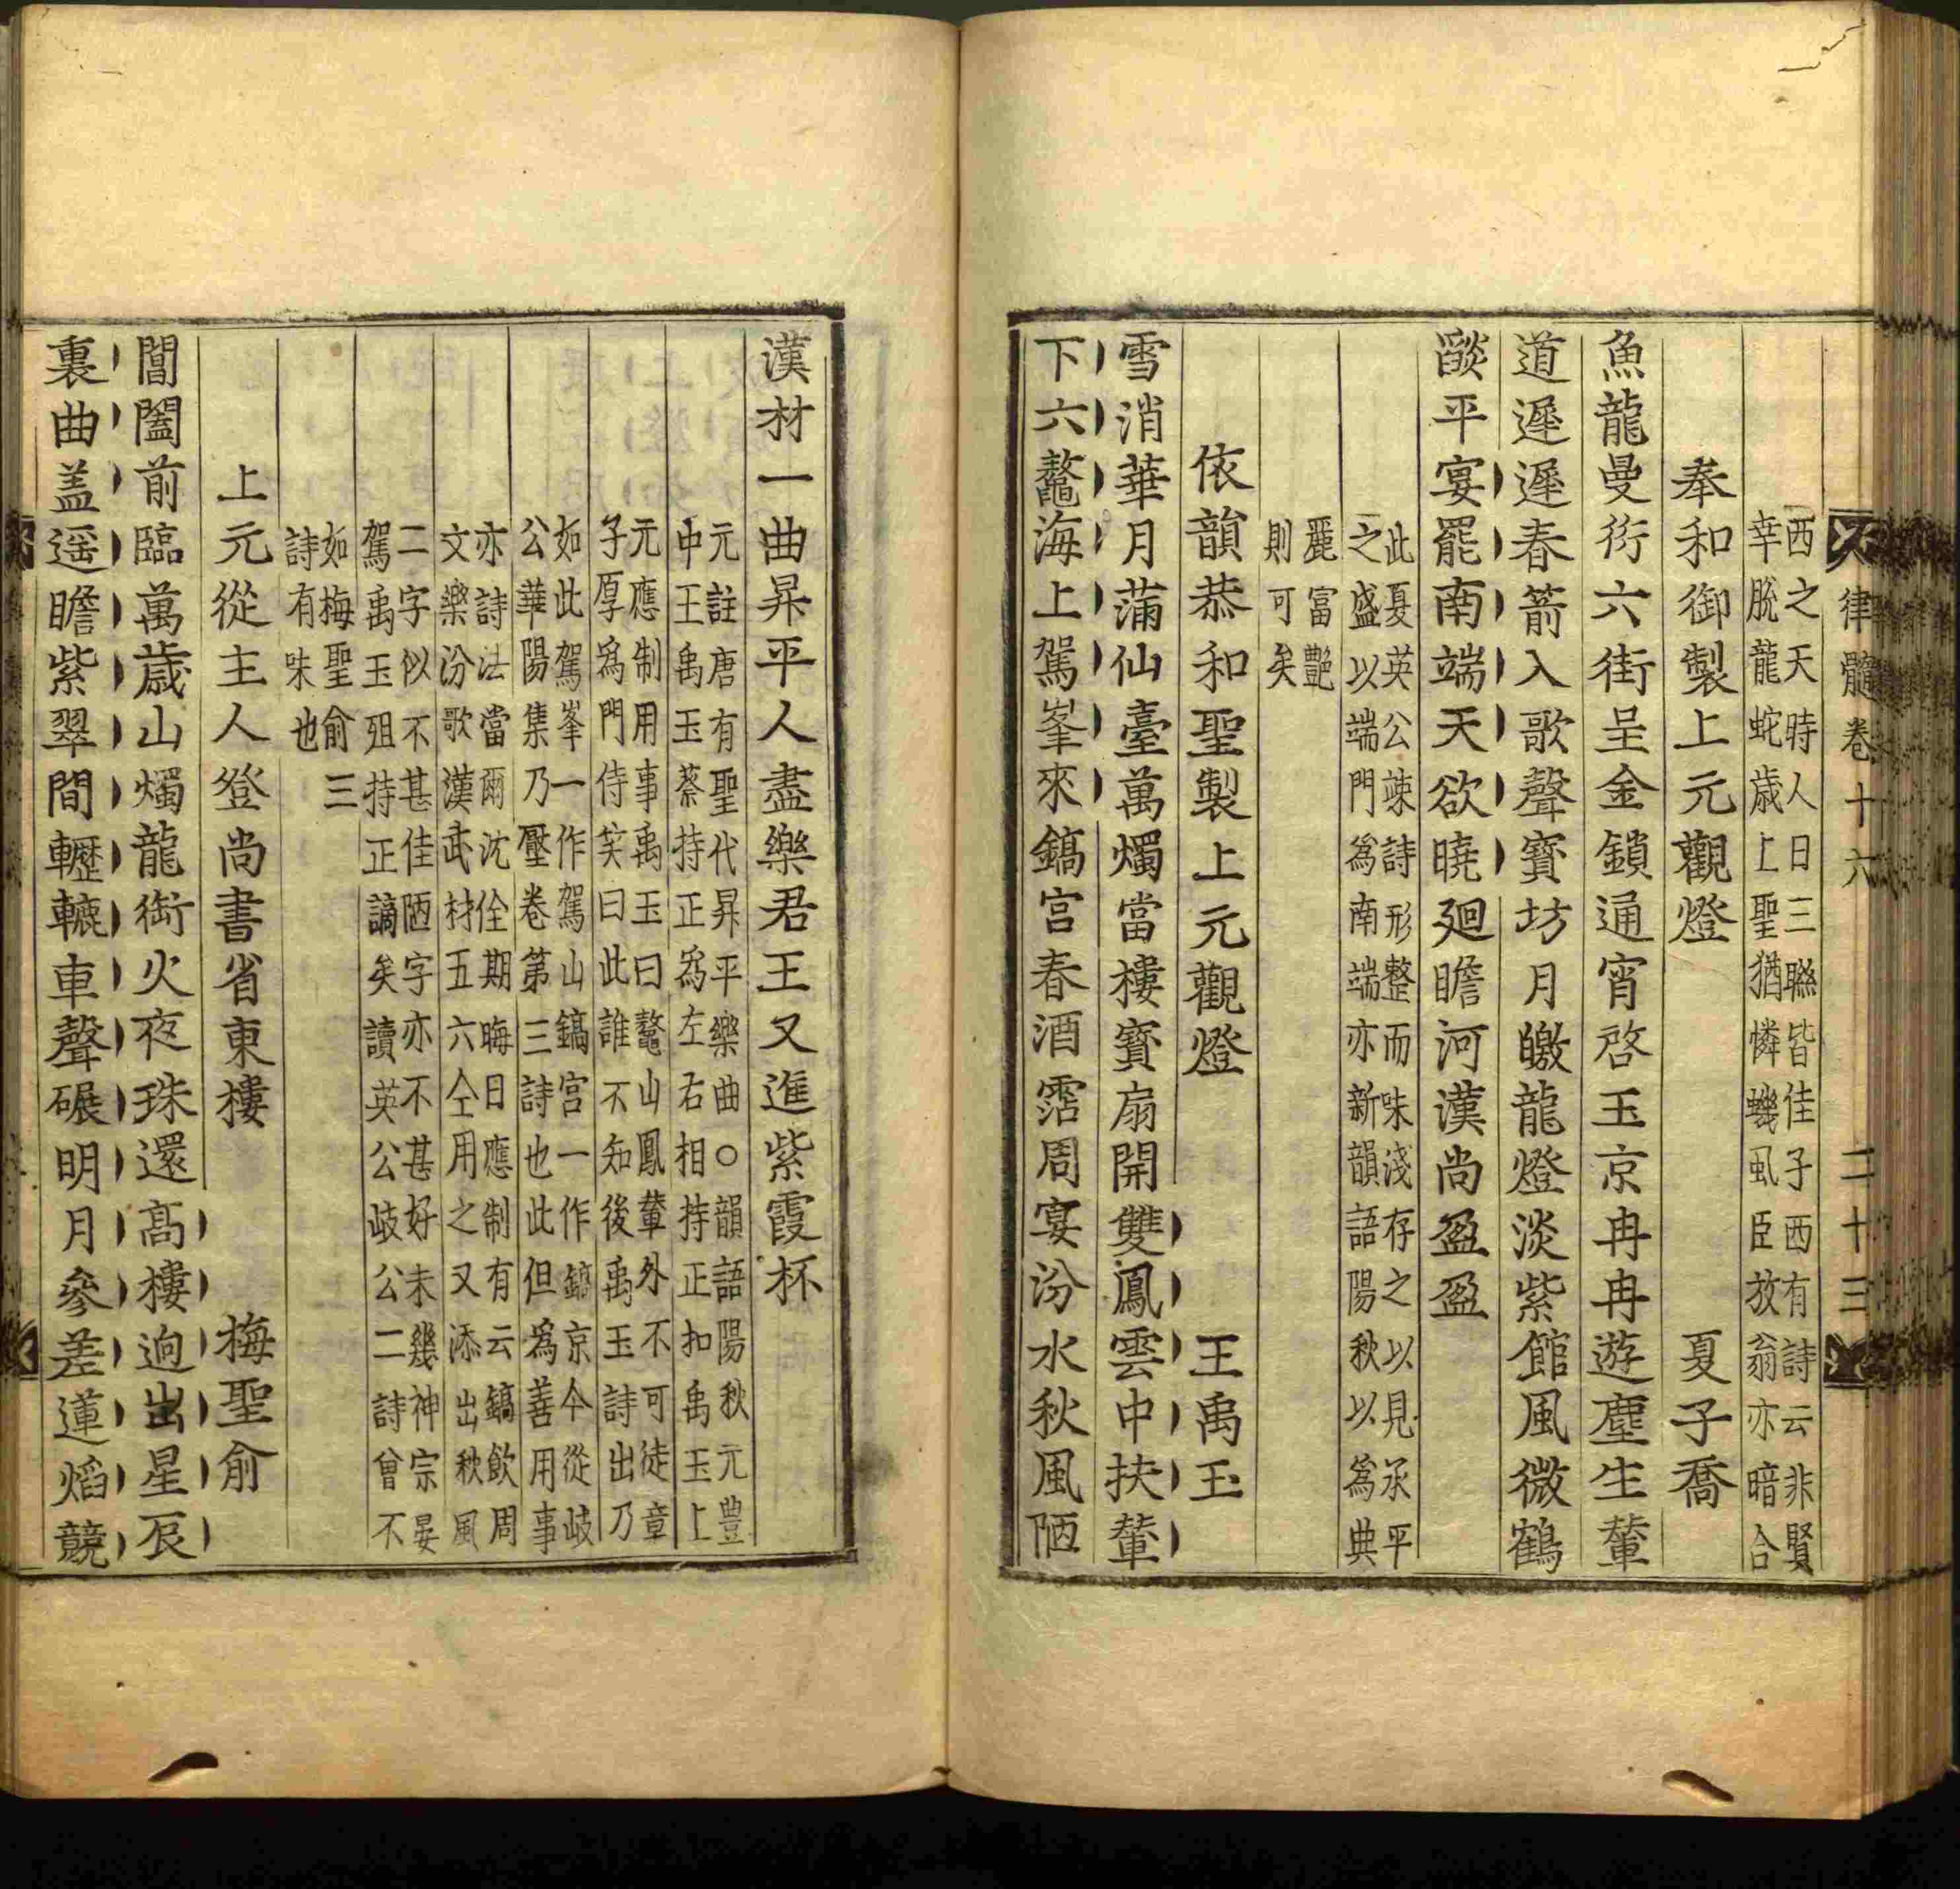 律髓卷十六　二十三
西之天時人日三聯皆佳子西有詩云非賢
幸脫龍蛇歲上聖猶憐蟣虱臣放翁亦暗合
奉和御製上元觀燈　夏子喬
魚龍曼衍六街呈金鎖通宵啓玉京冉冉遊塵生輦
道遲遲春箭入歌聲寶坊月皦龍燈淡紫館風微鶴
燄平宴罷南端天欲曉廻瞻河漢尚盈盈
此夏英公竦詩形整而味淺存之以見承平
之盛以端門爲南端亦新韻語陽秋以爲典
麗富艷
則可矣
依韻恭和聖製上元觀燈　王禹玉
雪消華月滿仙臺萬燭當樓寶扇開雙鳳雲中扶輦
下六鼇海上駕峯來鎬宮春酒霑周宴汾水秋風陋
漢材一曲昇平人盡樂君王又進紫霞杯
元註唐有聖代昇平樂曲○韻語陽秋元豊
中王禹玉蔡持正爲左右相持正扣禹玉上
元應制用事禹玉曰鼇山鳳輦外不可徒章
子厚爲門侍笑曰此誰不知後禹玉詩出乃
如此駕峯一作駕山鎬宮一作鎬京今從岐
公華陽集乃壓卷第三詩也此但爲善用事
亦詩法當爾沈佺期晦日應制有云鎬飲周
文樂汾歌漢武材五六仝用之又添出秋風
二字似不甚佳陋字亦不甚好未幾神宗晏
駕禹玉殂持正謫矣讀英公岐公二詩曾不
如梅聖俞三
詩有味也
上元從主人登尚書省東樓　梅聖俞
閶闔前臨萬歲山燭龍銜火夜珠還高樓逈出星辰
裏曲盖遥瞻紫翠間轣轆車聲碾明月參差蓮焰競